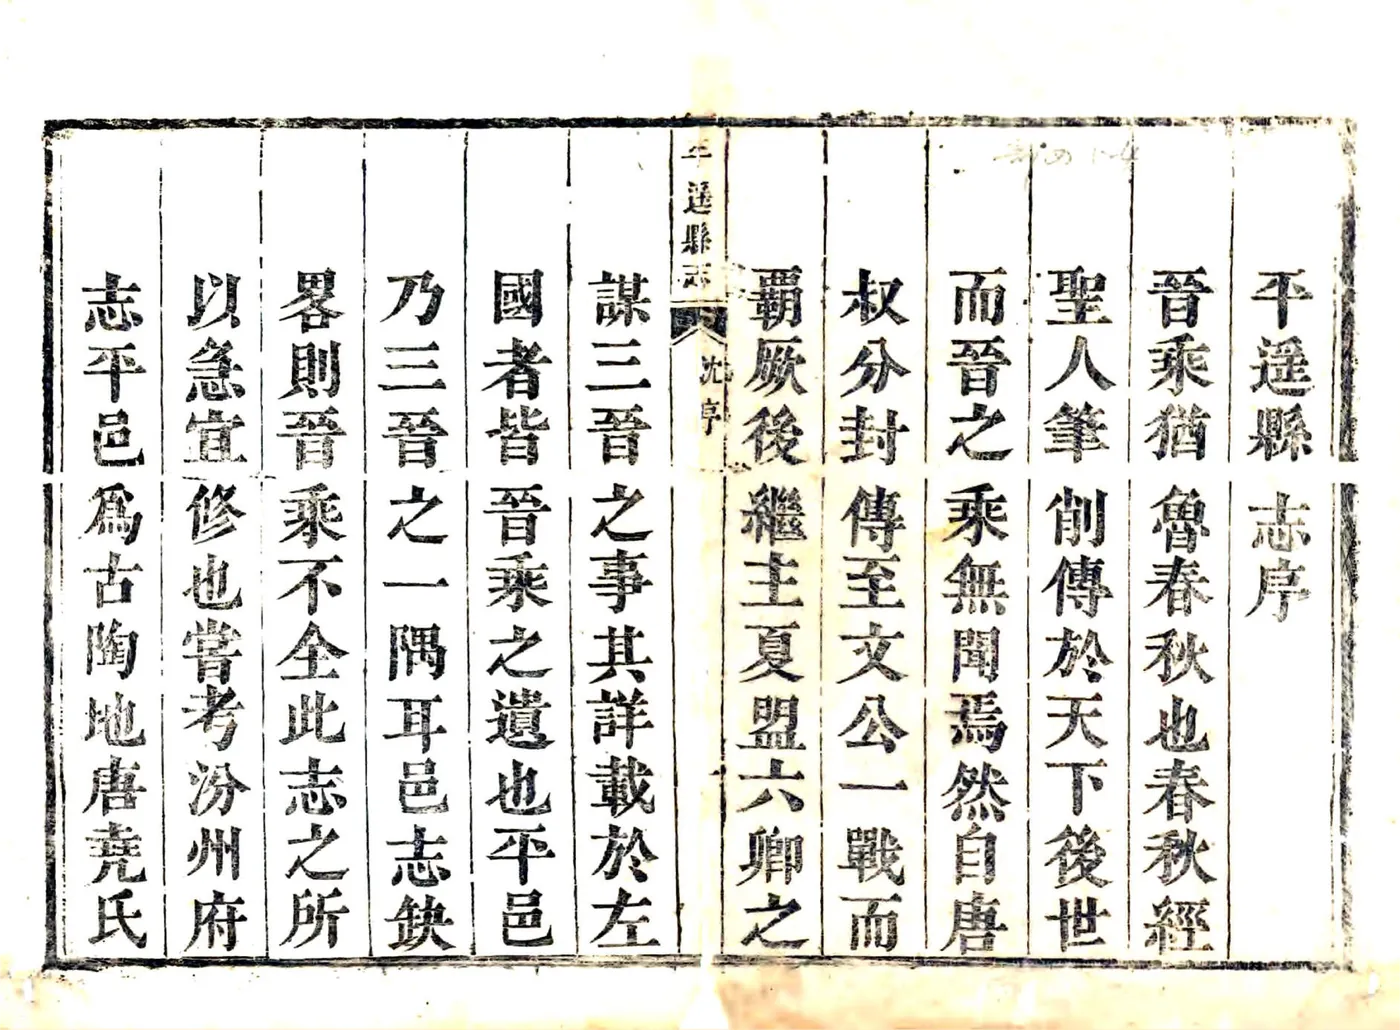 平遥縣志序
晉乘猶魯春秋也春秋經
聖人筆削傳於天下後世
而晉之乘無聞焉然自唐
叔分封傳至文公一戰而
覇厥後繼主夏盟六卿之
平遥縣志
沈序
謀三晉之事其詳載於左
國者皆晉乘之遺也平邑
乃三晉之一隅耳邑志缺
畧則晉乘不全此志之所
以急宜修也嘗考汾州府
志平邑爲古陶地唐堯氏